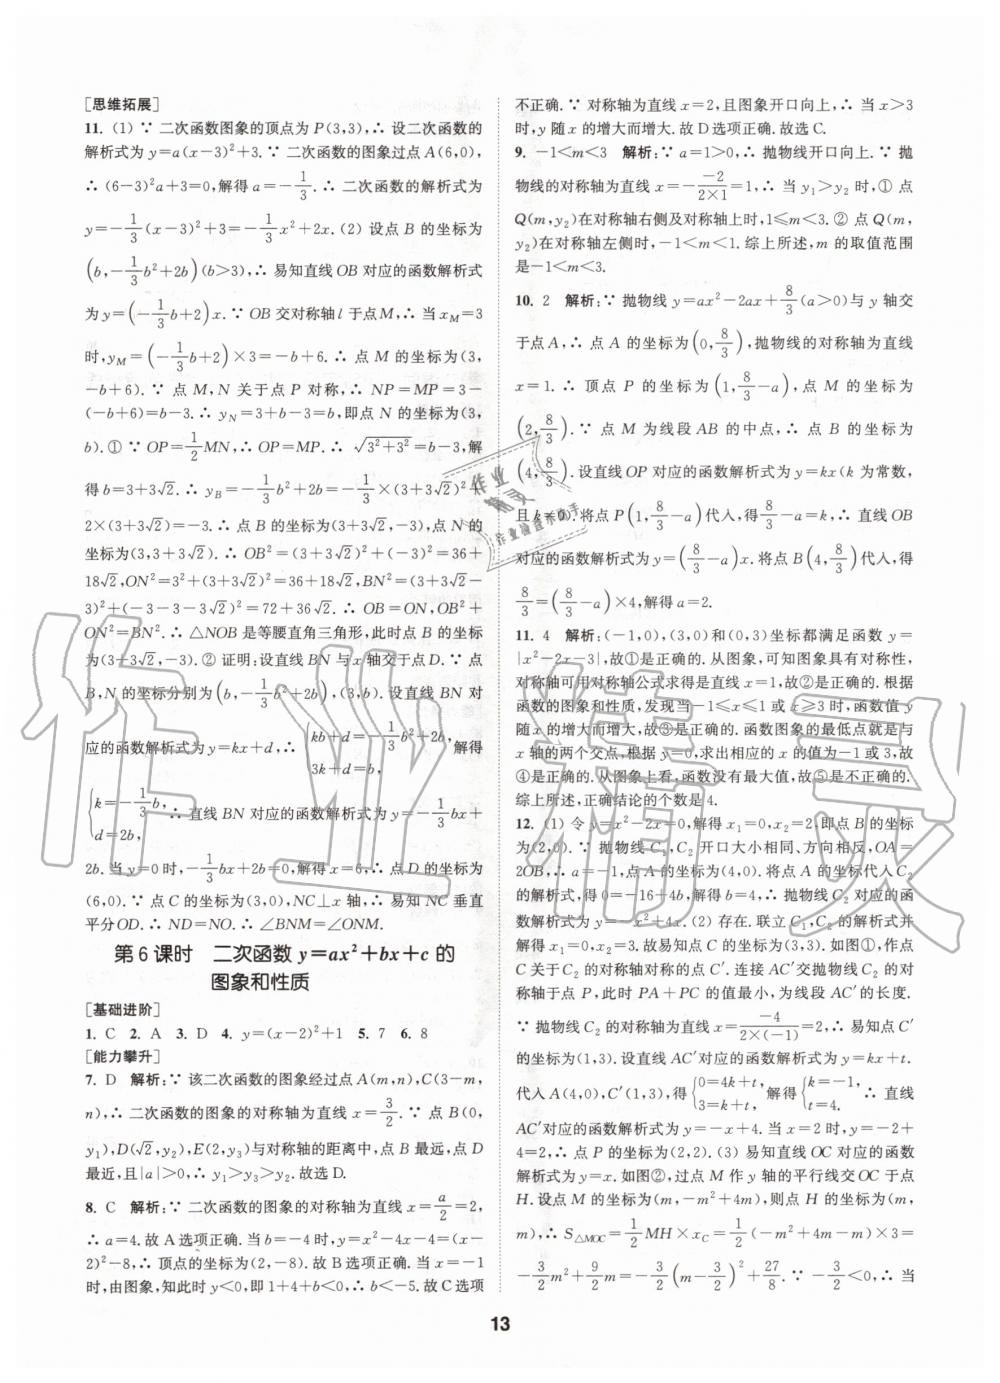 [思维拓展]
11. (1) ∵ 二次函数图象的顶点为 P(3,3),∴ 设二次函数的
解析式为 y=a(x-3)²+3.∵ 二次函数的图象过点 A(6,0),
∴ (6-3)²a+3=0,解得 a=-1/3.∴ 二次函数的解析式为
y=-1/3(x-3)²+3=-1/3x²+2x.(2) 设点 B 的坐标为
(b,-1/3b²+2b)(b>3),∴ 易知直线 OB 对应的函数解析式
为 y=(-1/3b+2)x.∵ OB 交对称轴 l 于点 M,∴ 当 x_M=3
时,y_M=(-1/3b+2)×3=-b+6.∴ 点 M 的坐标为(3,
-b+6).∵ 点 M,N 关于点 P 对称,∴ NP=MP=3-
(-b+6)=b-3.∴ y_N=3+b-3=b,即点 N 的坐标为(3,
b).① ∵ OP=1/2MN,∴ OP=MP.∴ √(3²+3²)=b-3,解
得 b=3+3√2.∴ y_B=-1/3b²+2b=-1/3×(3+3√2)²+
2×(3+3√2)=-3.∴ 点 B 的坐标为(3+3√2,-3),点 N 的
坐标为(3,3+3√2).∴ OB²=(3+3√2)²+(-3)²=36+
18√2,ON²=3²+(3+3√2)²=36+18√2,BN²=(3+3√2-
3)²+(-3-3-3√2)²=72+36√2.∴ OB=ON,OB²+
ON²=BN².∴ △NOB 是等腰直角三角形,此时点 B 的坐标
为(3+3√2,-3).② 证明:设直线 BN 与 x 轴交于点 D.∵ 点
B,N 的坐标分别为(b,-1/3b²+2b),(3,b).设直线 BN 对
应的函数解析式为 y=kx+d,∴ {kb+d=-1/3b²+2b, 3k+d=b, 解得
{k=-1/3b, d=2b, ∴ 直线 BN 对应的函数解析式为 y=-1/3bx+
2b.当 y=0 时,-1/3bx+2b=0,解得 x=6,∴ 点 D 的坐标为
(6,0).∵ 点 C 的坐标为(3,0),NC⊥x 轴,∴ 易知 NC 垂直
平分 OD.∴ ND=NO.∴ ∠BNM=∠ONM.
第 6 课时 二次函数 y=ax²+bx+c 的
图象和性质
[基础进阶]
1. C 2. A 3. D 4. y=(x-2)²+1 5. 7 6. 8
[能力攀升]
7. D 解析:∵ 该二次函数的图象经过点 A(m,n),C(3-m,
n),∴ 二次函数的图象的对称轴为直线 x=3/2.∵ 点 B(0,
y₁),D(√2,y₂),E(2,y₃)与对称轴的距离中,点 B 最远,点 D
最近,且|a|>0,∴ y₁>y₃>y₂.故选 D.
8. C 解析:∵ 二次函数的图象的对称轴为直线 x=a/2=2,
∴ a=4.故 A 选项正确.当 b=-4 时,y=x²-4x-4=(x-
2)²-8,∴ 顶点的坐标为(2,-8).故 B 选项正确.当 x=-1
时,由图象,知此时 y<0,即 1+4+b<0,∴ b<-5.故 C 选项
不正确.∵ 对称轴为直线 x=2,且图象开口向上,∴ 当 x>3
时,y 随 x 的增大而增大.故 D 选项正确.故选 C.
9. -1<m<3 解析:∵ a=1>0,∴ 抛物线开口向上.∵ 抛
物线的对称轴为直线 x=-(-2)/(2×1)=1,∴ 当 y₁>y₂ 时,① 点
Q(m,y₂)在对称轴右侧及对称轴上时,1≤m<3.② 点 Q(m,
y₂)在对称轴左侧时,-1<m<1.综上所述,m 的取值范围
是-1<m<3.
10. 2 解析:∵ 抛物线 y=ax²-2ax+8/3(a>0)与 y 轴交
于点 A,∴ 点 A 的坐标为(0,8/3),抛物线的对称轴为直线
x=1.∴ 顶点 P 的坐标为(1,8/3-a),点 M 的坐标为
(2,8/3).∵ 点 M 为线段 AB 的中点,∴ 点 B 的坐标为
(4,8/3).设直线 OP 对应的函数解析式为 y=kx(k 为常数,
且 k≠0).将点 P(1,8/3-a)代入,得 8/3-a=k,∴ 直线 OB
对应的函数解析式为 y=(8/3-a)x.将点 B(4,8/3)代入,得
8/3=(8/3-a)×4,解得 a=2.
11. 4 解析:(-1,0),(3,0)和(0,3)坐标都满足函数 y=
|x²-2x-3|,故①是正确的.从图象,可知图象具有对称性,
对称轴可用对称轴公式求得是直线 x=1,故②是正确的.根据
函数的图象和性质,发现当-1≤x≤1 或 x≥3 时,函数值 y
随 x 的增大而增大,故③是正确的.函数图象的最低点就是与
x 轴的两个交点,根据 y=0,求出相应的 x 的值为-1 或 3,故
④是正确的.从图象上看,函数没有最大值,故⑤是不正确的.
综上所述,正确结论的个数是 4.
12. (1) 令 y=x²-2x=0,解得 x₁=0,x₂=2,即点 B 的坐标
为(2,0).∵ C₁,C₂ 开口大小相同、方向相反,OA=
2OB,∴ a=-1,点 A 的坐标为(4,0).将点 A 的坐标代入 C₂
的解析式,得 0=-16+4b,解得 b=4.∴ 抛物线 C₂ 对应的函
数解析式为 y=-x²+4x.(2) 存在.联立 C₁,C₂ 的解析式并
解得 x₁=0,x₂=3.故易知点 C 的坐标为(3,3).如图①,作点
C 关于 C₂ 的对称轴对称的点 C′.连接 AC′交抛物线 C₂ 的对
称轴于点 P,此时 PA+PC 的值最小,为线段 AC′的长度.
∵ 抛物线 C₂ 的对称轴为直线 x=-4/(2×(-1))=2,∴ 易知点 C′
的坐标为(1,3).设直线 AC′对应的函数解析式为 y=kx+t.
代入 A(4,0),C′(1,3),得{0=4k+t, 3=k+t, 解得{k=-1, t=4. ∴ 直线
AC′对应的函数解析式为 y=-x+4.当 x=2 时,y=-2+
4=2,∴ 点 P 的坐标为(2,2).(3) 易知直线 OC 对应的函数
解析式为 y=x.如图②,过点 M 作 y 轴的平行线交 OC 于点
H.设点 M 的坐标为(m,-m²+4m),则点 H 的坐标为(m,
m),∴ S△MOC=1/2MH×x_C=1/2(-m²+4m-m)×3=
-3/2m²+9/2m=-3/2(m-3/2)²+27/8.∵ -3/2<0,∴ 当
13
作业
精灵
作业检查小助手
作业精灵